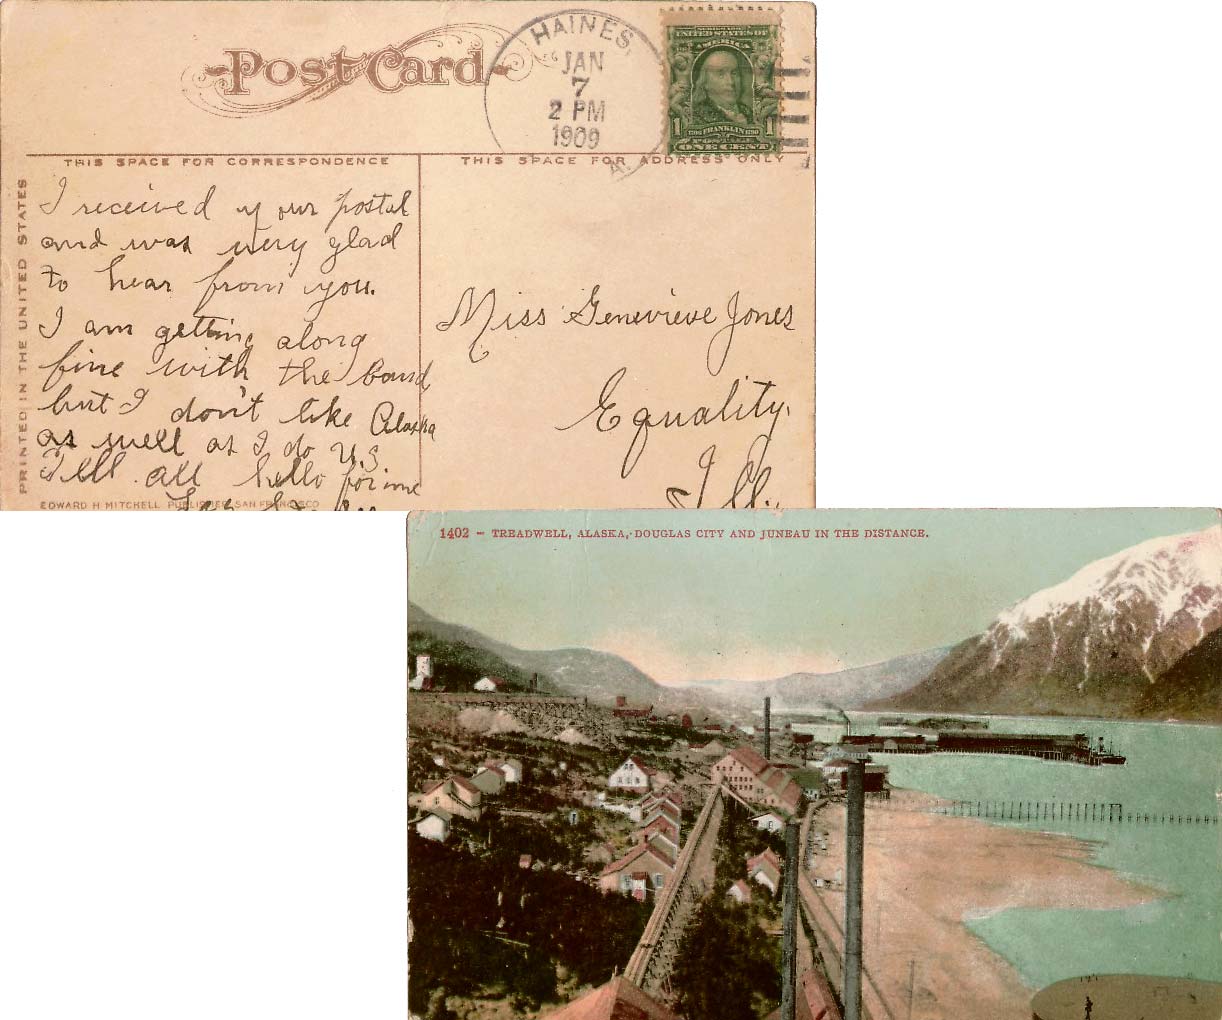 Post Card
HAINES,
JAN
7
2 PM
1909
A.
SERIES 1902
UNITED STATES OF
AMERICA
1 1706 FRANKLIN 1790 1
POSTAGE
ONE CENT
THIS SPACE FOR CORRESPONDENCE
THIS SPACE FOR ADDRESS ONLY
PRINTED IN THE UNITED STATES
I received your postal
and was very glad
to hear from you.
I am getting along
fine with the band
but I don't like Alaska
as well as I do U.S
Tell all hello for me
EDWARD H MITCHELL PUBLISHER SAN FRANCISCO
Miss Genevieve Jones
Equality.
Ill.
1402 - TREADWELL, ALASKA, DOUGLAS CITY AND JUNEAU IN THE DISTANCE.